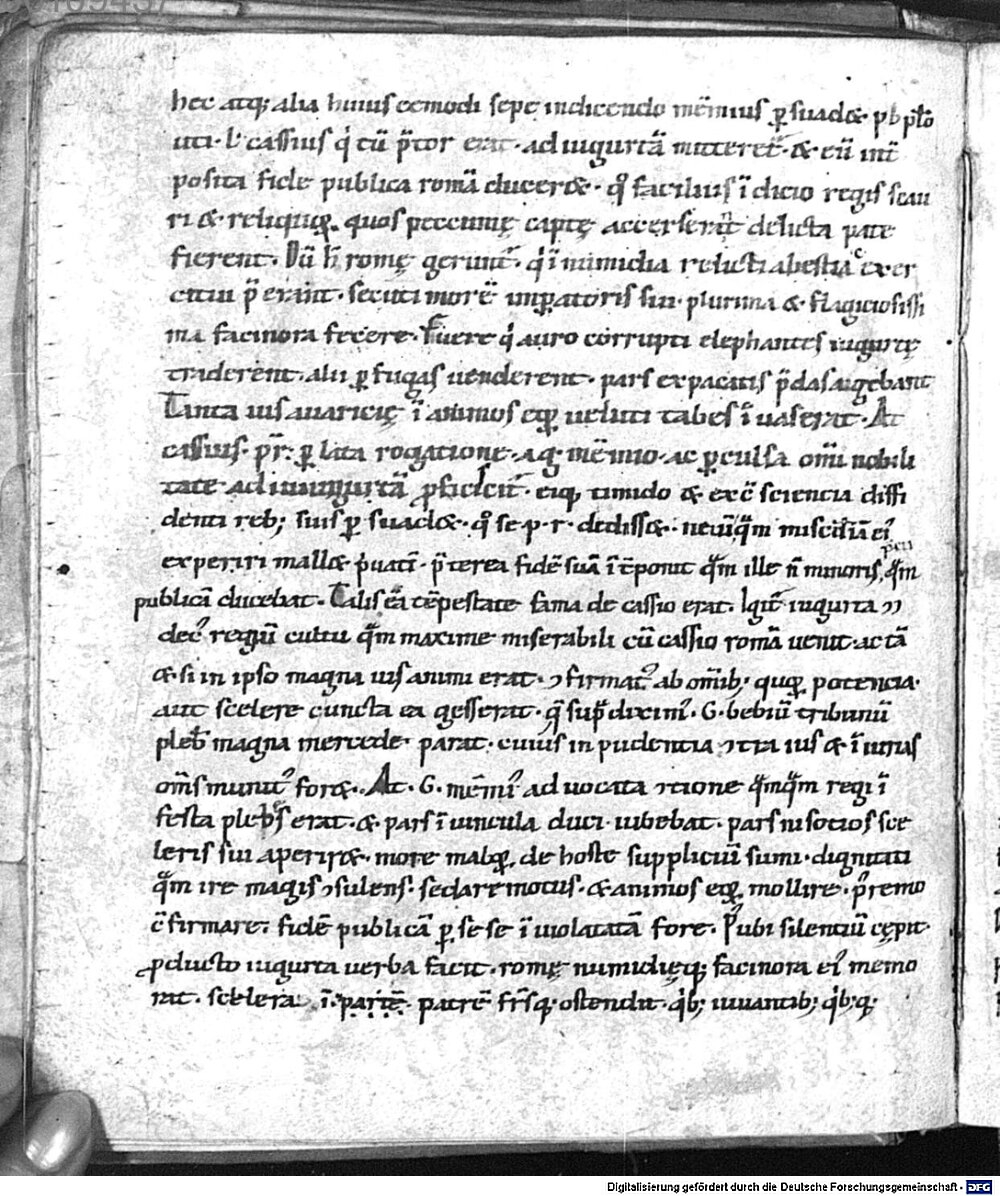 hec atq; alia huiuscemodi sepe indicendo mēmius ꝑsuadet pb pło
uti· L· cassius q̇ tū p̄tor erat· ad iugurtā mitteret̄· & eū int̄
posita fide publica romā duceret· q̊ facilius īdicio regis scau
ri & reliquoꝝ quos peccunię captę accerserāt delicta pate
fierent· Dū h̄ romę gerunt̄· q̇ ī numidia relicti abestia exer
citui p̄erant· secuti morē imꝑatoris sui· plurima & flagiciosissi
ma facinora fecere· Fuere q̇ auro corrupti elephantes iugurtę
traderent· alii ꝑfugas uenderent· pars expacatis p̄das agebant
Tanta uis auaricię ī animos eoꝝ ueluti tabes īuaserat· At
cassius· pr̄· ꝑlata rogatione· a g· mēmio· ac ꝑculsa om̄i nobili
tate· ad iugurtā ꝓficiscit̄· eiq; timido & ex c̄sciencia diffi
denti reb; suis ꝑsuadet· q̊ se· p· r· dedisset· ne uim̄ quā miscd̄iā ei᷒
experiri mallet p̓uatī· p̄terea fidē suā īt̄ponit quā ille n̄ minoris quā
publicā ducebat· Talis ea tēpestate fama de cassio erat· Igit̄ iugurta ɔ
dec᷒ regiū cultu quā maxime miserabili cū cassio romā uenit· ac tā
& si in ipso magna uis animi erat· ɔfirmat᷒ ab om̄ib; quoꝝ potencia·
aut scelere cuncta ea gesserat· q̄ sup̄ diximᷤ· G· bebiū tribunū
pleb̄ magna mercede parat· cuius inpudentia ɔtra ius & īiurias
om̄s munit᷒ foret· At· G· mēmi᷒ aduocata ɔtione quāquā regi ī
festa plebs erat· & pars ī uincula duci iubebat· pars ni socios sce
leris sui aperiret· more maioꝝ de hoste suppliciū sumi· dignitati
quā ire magis ɔsulens· sedare motus· & animos eoꝝ mollire· p̓remo
c̄firmare· fidē publicā ꝑ se se īuiolatatā fore· P᷒ ubi silentiū cępit·
ꝓducto iugurta uerba facit· romę numidięq; facinora ei᷒ memo
rat· scelera· ī parte patrē fr̄sq; ostendit· q̇b; iuuantib; q̇b;q;
Digitalisierung gefördert durch die Deutsche Forschungsgemeinschaft - DFG